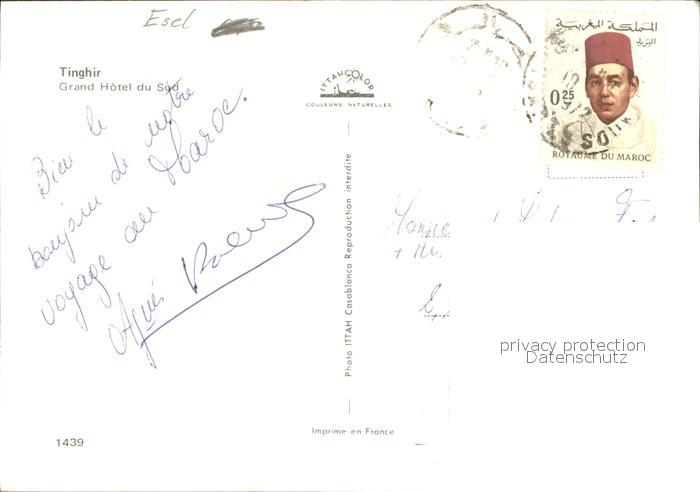 Esel
Tinghir
Grand Hôtel du Sud
ITTAHCOLOR
COULEURS NATURELLES
المملكة المغربية
البريد
0.25
SOUK
ROYAUME DU MAROC
Bien le
bonjour de notre
voyage au Maroc.
Agnès
Photo ITTAH Casablanca Reproduction interdite
+
privacy protection
Datenschutz
Imprimé en France
1439